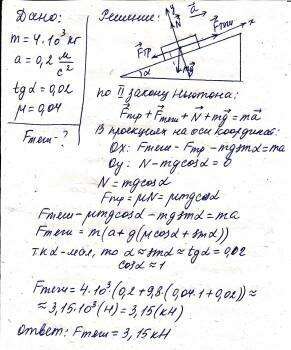 Дано:
m = 4·10³ кг
a = 0,2 м/с²
tgα = 0,02
μ = 0,04
Fтяги - ?
Решение:
y
N
a
Fтяги
x
Fтр
α
mg
по II закону Ньютона:
Fтр + Fтяги + N + mg = ma
В проекциях на оси координат:
Ox: Fтяги - Fтр - mg sinα = ma
Oy: N - mg cosα = 0
N = mg cosα
Fтр = μN = μmg cosα
Fтяги - μmg cosα - mg sinα = ma
Fтяги = m(a + g(μcosα + sinα))
т.к α - мал, то α ≈ sinα ≈ tgα = 0,02
cosα ≈ 1
Fтяги = 4·10³·(0,2 + 9,8·(0,04·1 + 0,02)) ≈
≈ 3,15·10³ (Н) = 3,15 (кН)
ответ: Fтяги = 3,15 кН